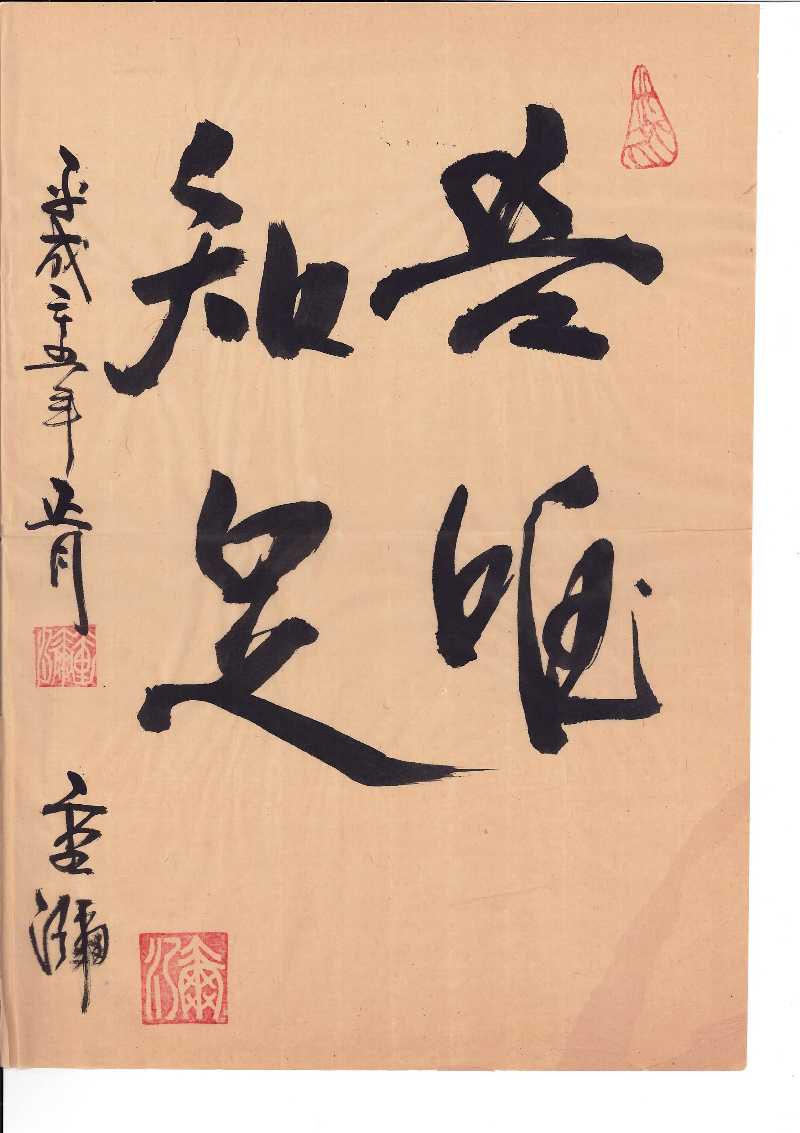 吾唯
知足
平成二十五年正月
重